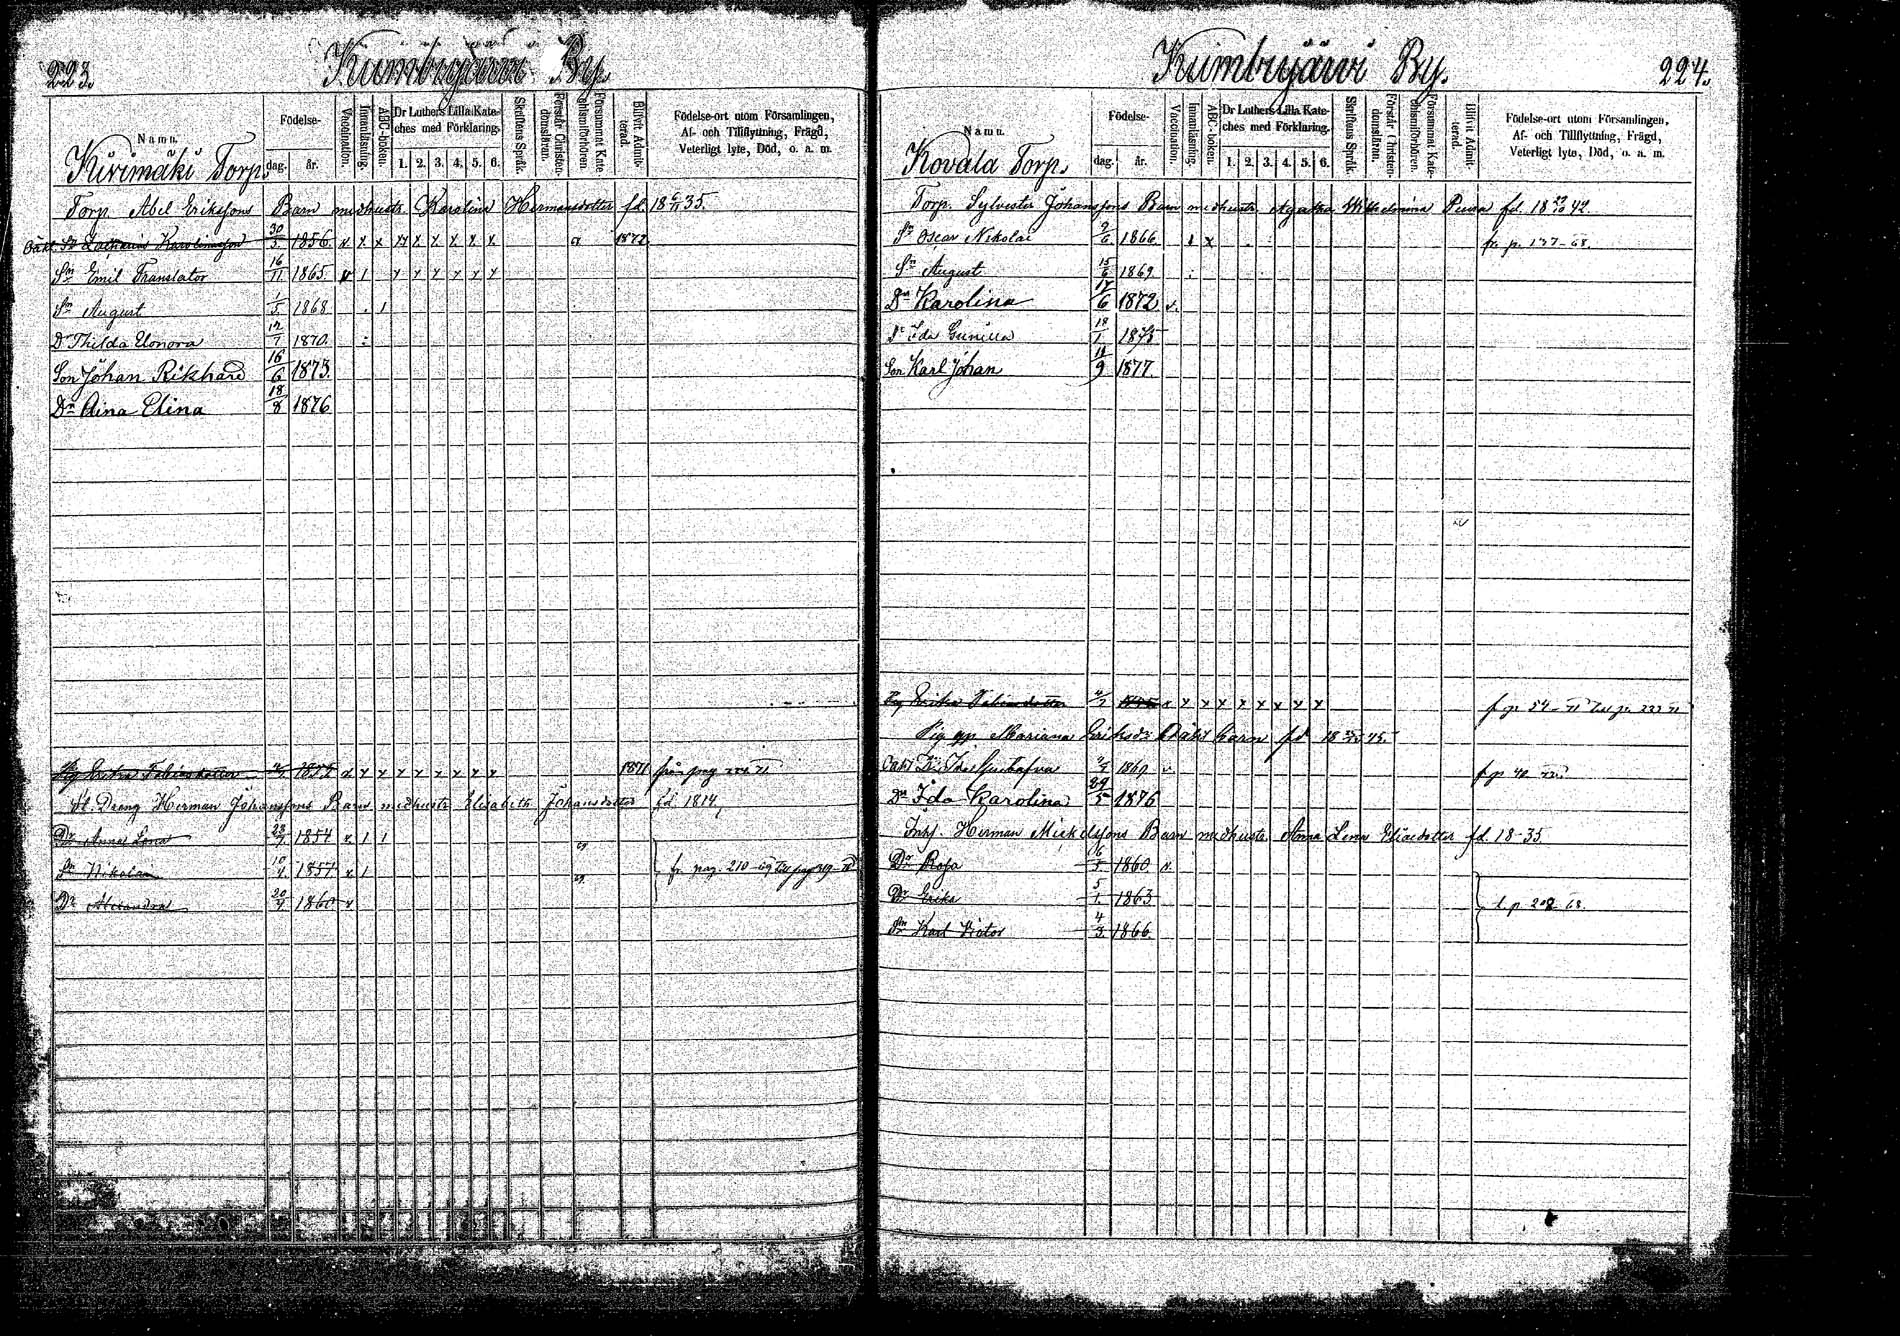 223.
Kumbyjärvi By.
Namn.
Födelse-
dag.
år.
Vaccination.
Innanläsning.
ABC-boken.
Dr Luthers Lilla Kate-
ches med Förklaring.
1. 2. 3. 4. 5. 6.
Skriftens Språk.
Förstår Christen-
domsläran.
Försummat Kate-
chismiförhören.
Blifvit Admit-
terad.
Födelse-ort utom Församlingen,
Af- och Tillflyttning, Frägd,
Veterligt lyte, Död, o. a. m.
Kivimäki Torp.
Torp. Abel Erikssons Barn med hustr. Karolina Hermansdotter fd. 18 35.
Oäkt. Sn Zacharias Karolinason 30/5 1856. x x x x x x x x x 1872
Sn Emil Translator 16/11 1865 x 1 x x x x x x
Sn August 1/5 1868 1
Dr Thilda Elonora 12/7 1870.
Son Johan Rikhard 16/6 1873.
Dr Aina Elina 18/8 1876
Pig Erika Fabiansdotter x x x x x x x x x 1871 från pag
Dräng Herman Johanssons Barn med hustr Elisabeth Johansdotter fd. 1814,
Dr Anna Lena 1854 x 1 1
Sn Nikolai 10/ 1857 x 1 fr. pag. 210-69 Till pag 319-
Dr Alexandra 20/ 1860 x
Kumbyjärvi By.
224.
Namn.
Födelse-
dag.
år.
Vaccination.
Innanläsning.
ABC-boken.
Dr Luthers Lilla Kate-
ches med Förklaring.
1. 2. 3. 4. 5. 6.
Skriftens Språk.
Förstår Christen-
domsläran.
Försummat Kate-
chismiförhören.
Blifvit Admit-
terad.
Födelse-ort utom Församlingen,
Af- och Tillflyttning, Frägd,
Veterligt lyte, Död, o. a. m.
Kovala Torp.
Torp. Sylvester Johanssons Barn med hustr. Agatha Wilhelmina fd. 18 42.
Sn Oscar Nikolai 1866. 1 x fr. p. 137-68.
Sn August 15/6 1869
Dr Karolina 17/6 1872 x.
Dr Ida Gunilla 18/1 1875
Son Karl Johan 11/9 1877.
Pig Erika Fabiansdotter x x x x x x x x x f p. 54-71
Pig Mariana Eriksdr Oäkt barn fd 18 45.
Oäkt Dr Ida Gustafva 1869 f p 40
Dr Ida Karolina 29/5 1876
Inhs. Herman Mickelssons Barn med hustr. Anna Lena Eliaedotter fd. 18-35.
Dr Rosa 16/5 1860 x.
Dr Erika 5/1 1863 t. p. 208-68.
Sn Karl Victor 4/3 1866.